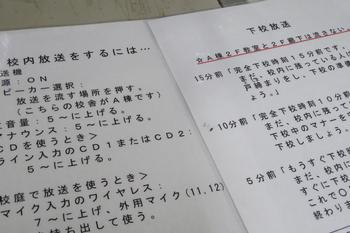 校内放送をするには…
送機
源：ON
ピーカー選択：
放送を流す場所を押す。
（こちらの校舎がA棟です）
音量：5～に上げる。
ナウンス：5～に上げる。
CDを使うとき＞
ライン入力のCD1またはCD2：
5～に上げる。
校庭で放送を使うとき＞
マイク入力のワイヤレス：
7～に上げ、外用マイク(11,12)
持ち出して使う。
下校放送
15分前「完全下校時刻15分前です。
まだ、校内に残ってい
戸締まりをし、下校の準備
ょう。」
10分前「完全下校時刻10分
まだ、校内に残って
下校中のマナーを
下校しましょう。
5分前「もうすぐ下校
まだ、校内に
すぐに下校
これで
終わりま